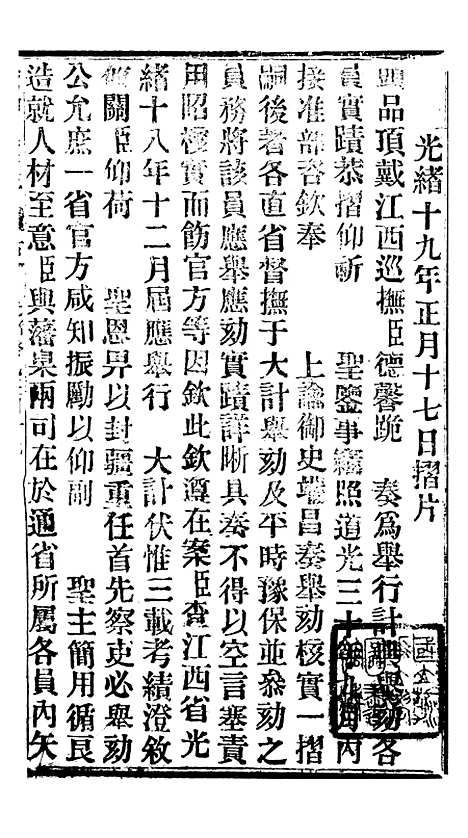 光緒十九年正月十七日摺片
頭品頂戴江西巡撫臣德馨跪 奏爲舉行計典舉劾各
員實蹟恭摺仰祈 聖鑒事竊照道光三十年九月內
接准部咨欽奉 上諭御史端昌奏舉劾核實一摺
嗣後著各直省督撫于大計舉劾及平時豫保並叅劾之
員務將該員應舉應劾實蹟詳晰具奏不得以空言塞責
用昭核實而飭官方等因欽此欽遵在案臣查江西省光
緒十八年十二月屆應舉行 大計伏惟三載考績澄敘
攸關臣仰荷 聖恩畀以封疆重任首先察吏必舉劾
公允庶一省官方咸知振勵以仰副 聖主簡用循良
造就人材至意臣與藩臬兩司在於通省所屬各員內矢